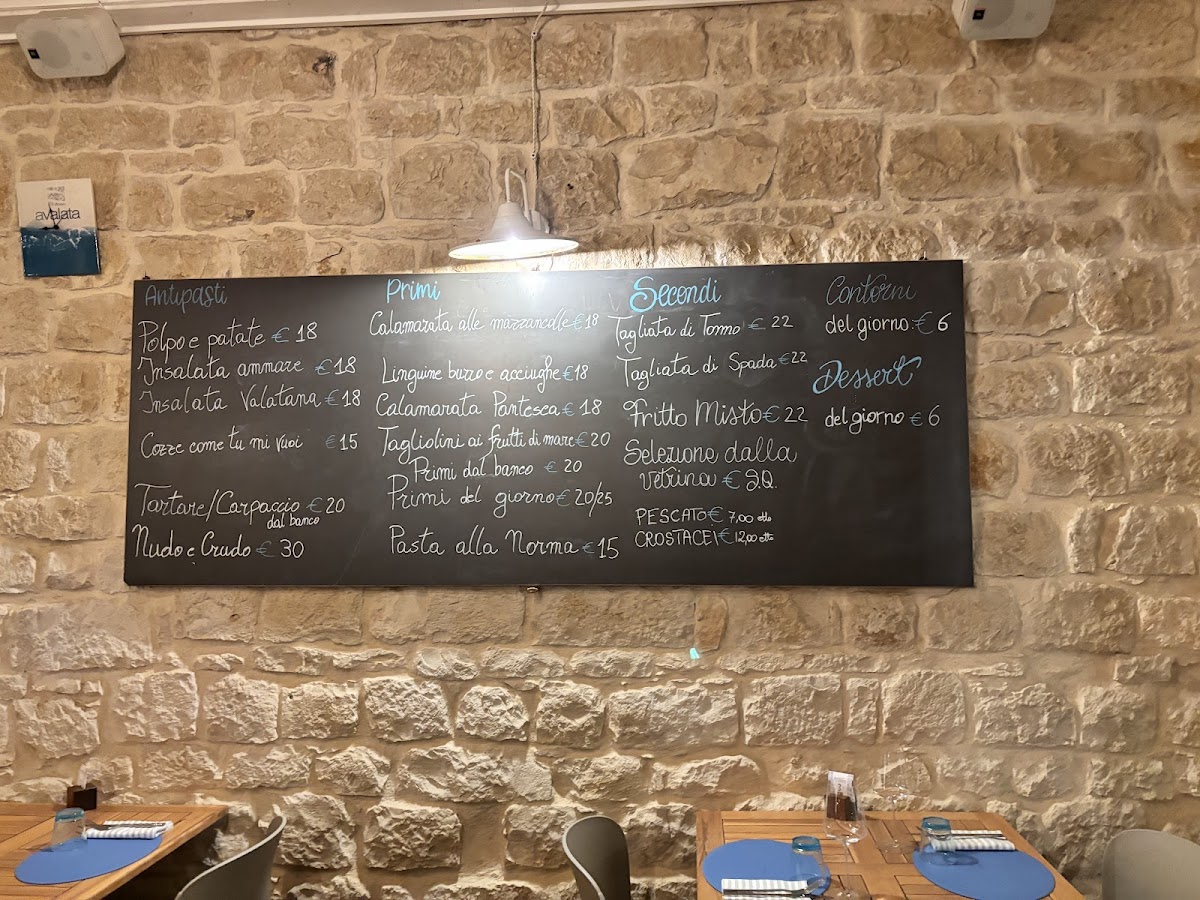 avalata
Antipasti
Polpo e patate € 18
Insalata ammare € 18
Insalata Valatana € 18
Cozze come tu mi vuoi € 15
Tartare/Carpaccio € 20
dal banco
Nudo e Crudo € 30
Primi
Calamarata alle mazzancolle € 18
Linguine burro e acciughe € 18
Calamarata Pantesca € 18
Tagliolini ai frutti di mare € 20
Primi dal banco € 20
Primi del giorno € 20/25
Pasta alla Norma € 15
Secondi
Tagliata di Tonno € 22
Tagliata di Spada € 22
Fritto Misto € 22
Selezione dalla
vetrina € S.Q.
PESCATO € 7,00 etto
CROSTACEI € 12,00 etto
Contorni
del giorno € 6
Dessert
del giorno € 6